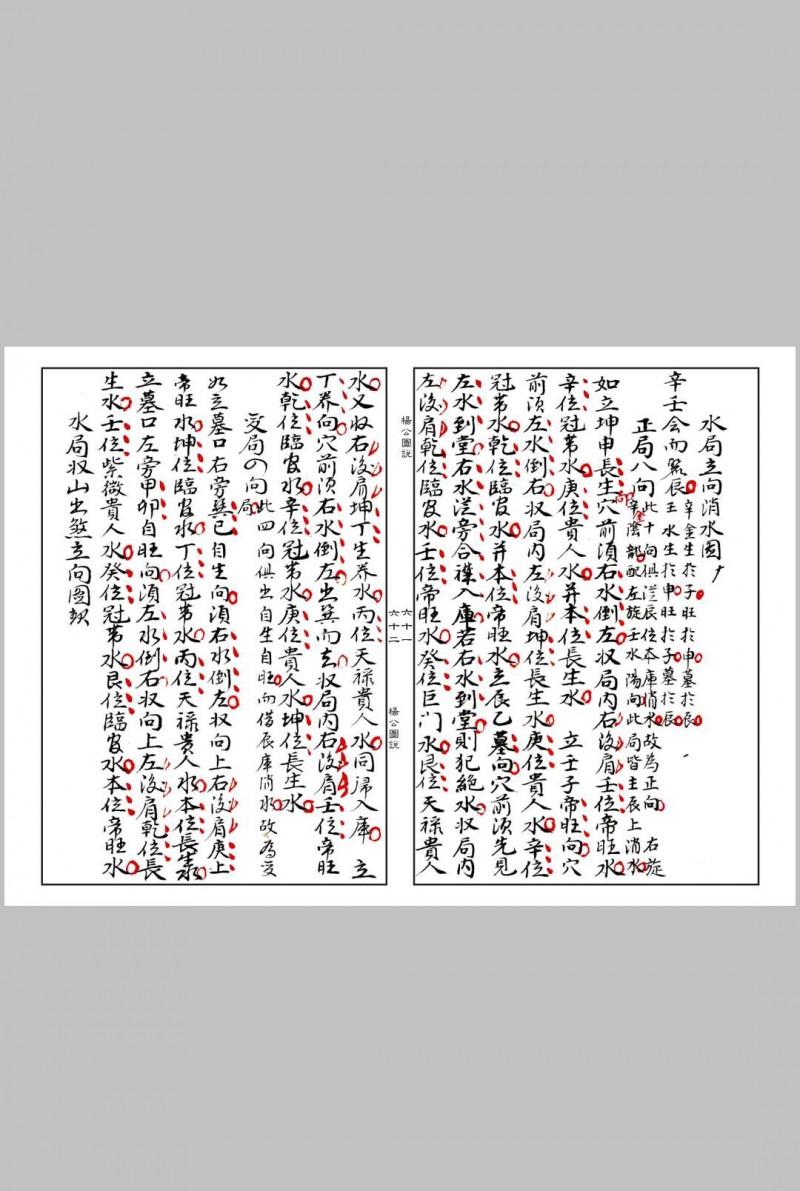 水局立向消水圖
辛壬会而聚辰 辛金生於子旺於申墓於辰
壬水生於申旺於子墓於辰
正局八向 此十向俱從辰位本庫消水故為正向 右旋
辛金陰部配左旋壬水陽向此局皆主辰上消水
如立坤申長生向穴前須右水倒左収局內右後肩壬位帝旺水
辛位冠帶水庚位貴人水并本位長生水 立壬子帝旺向穴
前須左水倒右収局內左後肩坤位長生水庚位貴人水辛位
冠帶水乾位臨官水并本位帝旺水立辰乙墓向穴前須先見
左水到堂右水從旁合襟入庫若右水到堂則犯絕水収局內
左後肩乾位臨官水壬位帝旺水癸位巨门水艮位天祿貴人
楊公圖説
六十一
六十二
楊公圖説
水又收右後肩坤丁生养水丙位天祿貴人水同歸入庫 立
丁养向穴前須右水倒左出巽而去収局內右後肩壬位帝旺
水乾位臨官水辛位冠帶水庚位貴人水坤位長生水
変局の向局 此四向俱出自生自旺而借辰庫消水故為変
如立墓口右旁巽巳自生向須右水倒左収向上右後肩庚上
帝旺水坤位臨官水丁位冠帶水丙位天祿貴人水本位長生水
立墓口左旁甲卯自旺向須左水倒右収向上左後肩乾位長
生水壬位紫微貴人水癸位冠帶水艮位臨官水本位帝旺水
水局収山出煞立向圖